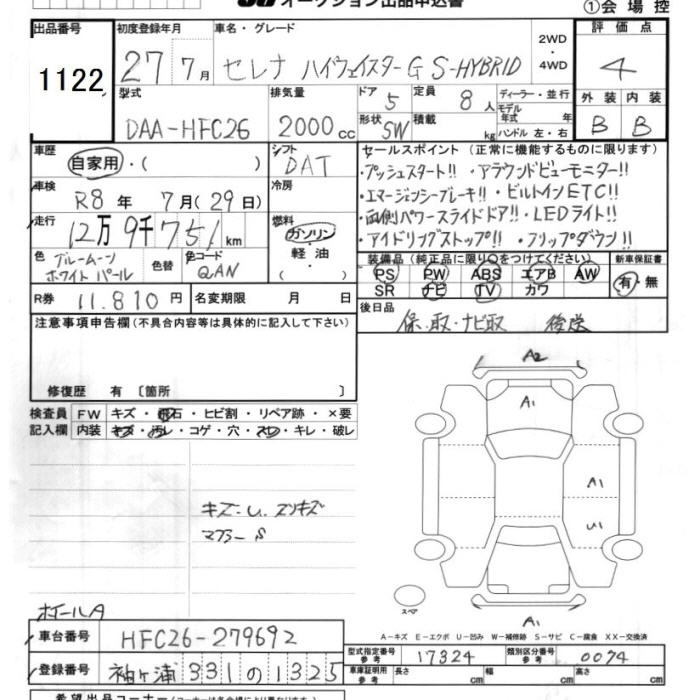 オークション出品申込書
①会場控
出品番号 初度登録年月 車名・グレード 2WD・4WD 評価点
1122 27年7月 セレナ ハイウェイスターG S-HYBRID 4
型式 排気量 ドア 5 定員 8人 ディーラー・並行 外装 内装
DAA-HFC26 2000cc 形状 SW 積載 kg モデル年式 年 ハンドル 左・右 B B
車歴 自家用・( ) シフト DAT セールスポイント (正常に機能するものに限ります)
・プッシュスタート!! ・アラウンドビューモニター!!
車検 R8年 7月(29日) 冷房 ・エマージェンシーブレーキ!! ・ビルトインETC!!
走行 12万9千751km 燃料 ガソリン・軽油・( ) ・両側パワースライドドア!! ・LEDライト!!
・アイドリングストップ!! ・フリップダウン!!
色 ブルームーンホワイトパール 色替 色コード QAN
装備品 (純正品に限り○をつけてください) 新車保証書
PS PW ABS エアB AW 有・無
SR ナビ TV カワ
R券 11.810円 名変期限 月 日 後日品
保、取・ナビ取 後送
注意事項申告欄(不具合内容等は具体的に記入して下さい)
修復歴 有 〔箇所 〕
検査員 FW キズ・飛石・ヒビ割・リペア跡・×要
記入欄 内装 キズ・汚レ・コゲ・穴・スレ・キレ・破レ
A2
A1
A1
キズ・U. スリキズ
U1
マフラー S
スペア
A1
ホイールA
A-キズ E-エクボ U-凹み W-補修跡 S-サビ C-腐食 XX-交換済
車台番号 HFC26-279692
型式指定番号 参考 17324 類別区分番号 参考 0074
登録番号 袖ヶ浦 331 の 1325
車庫証明用 参考 長さ cm 幅 cm 高さ cm
希望出品コーナー